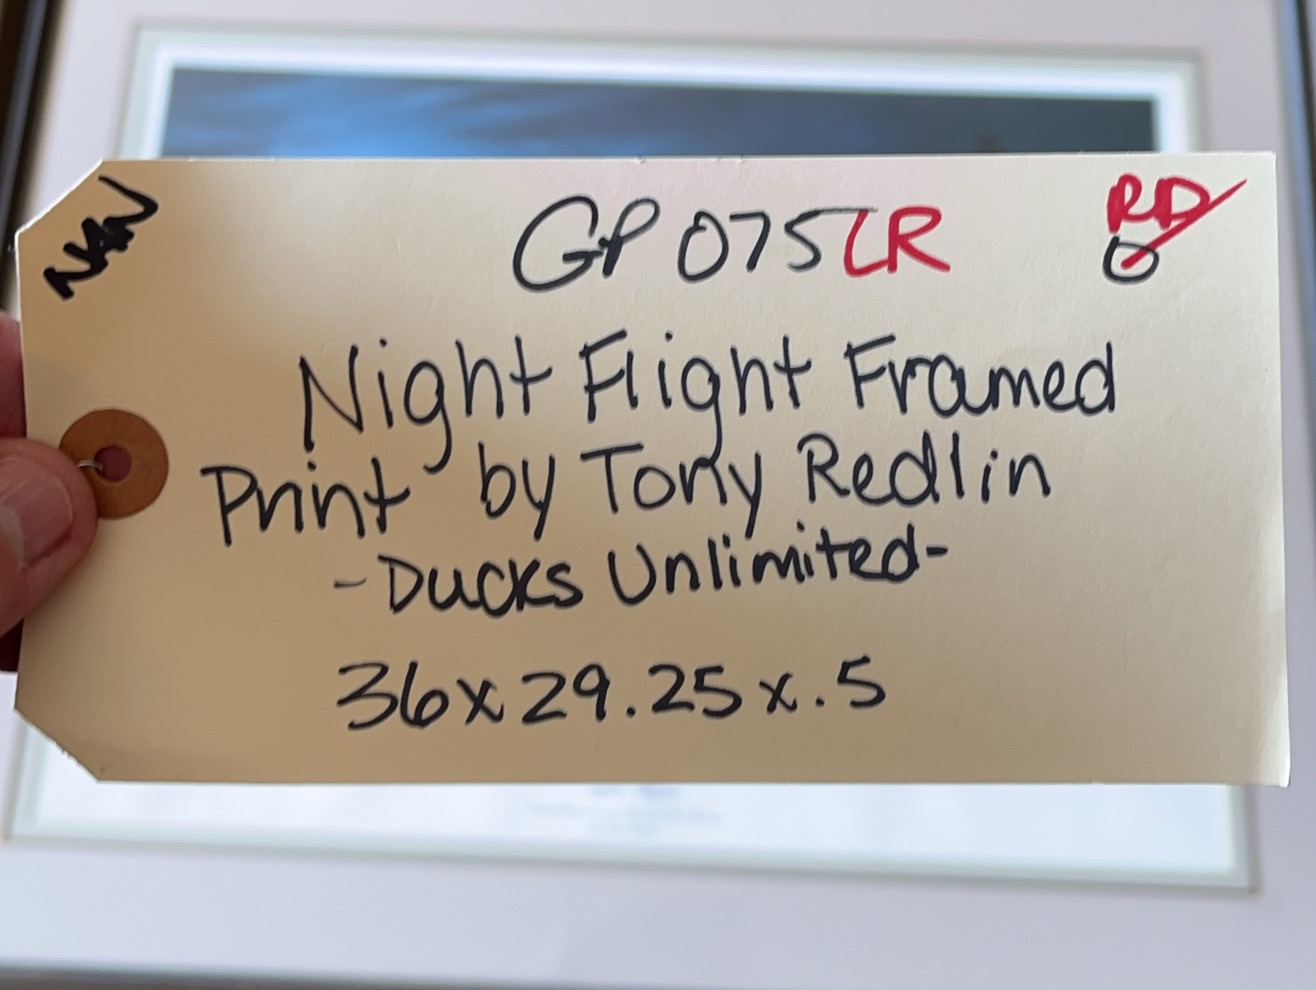 NAN
GP075LR
RD
O
Night Flight Framed
Print by Tony Redlin
-Ducks Unlimited-
36x29.25x.5